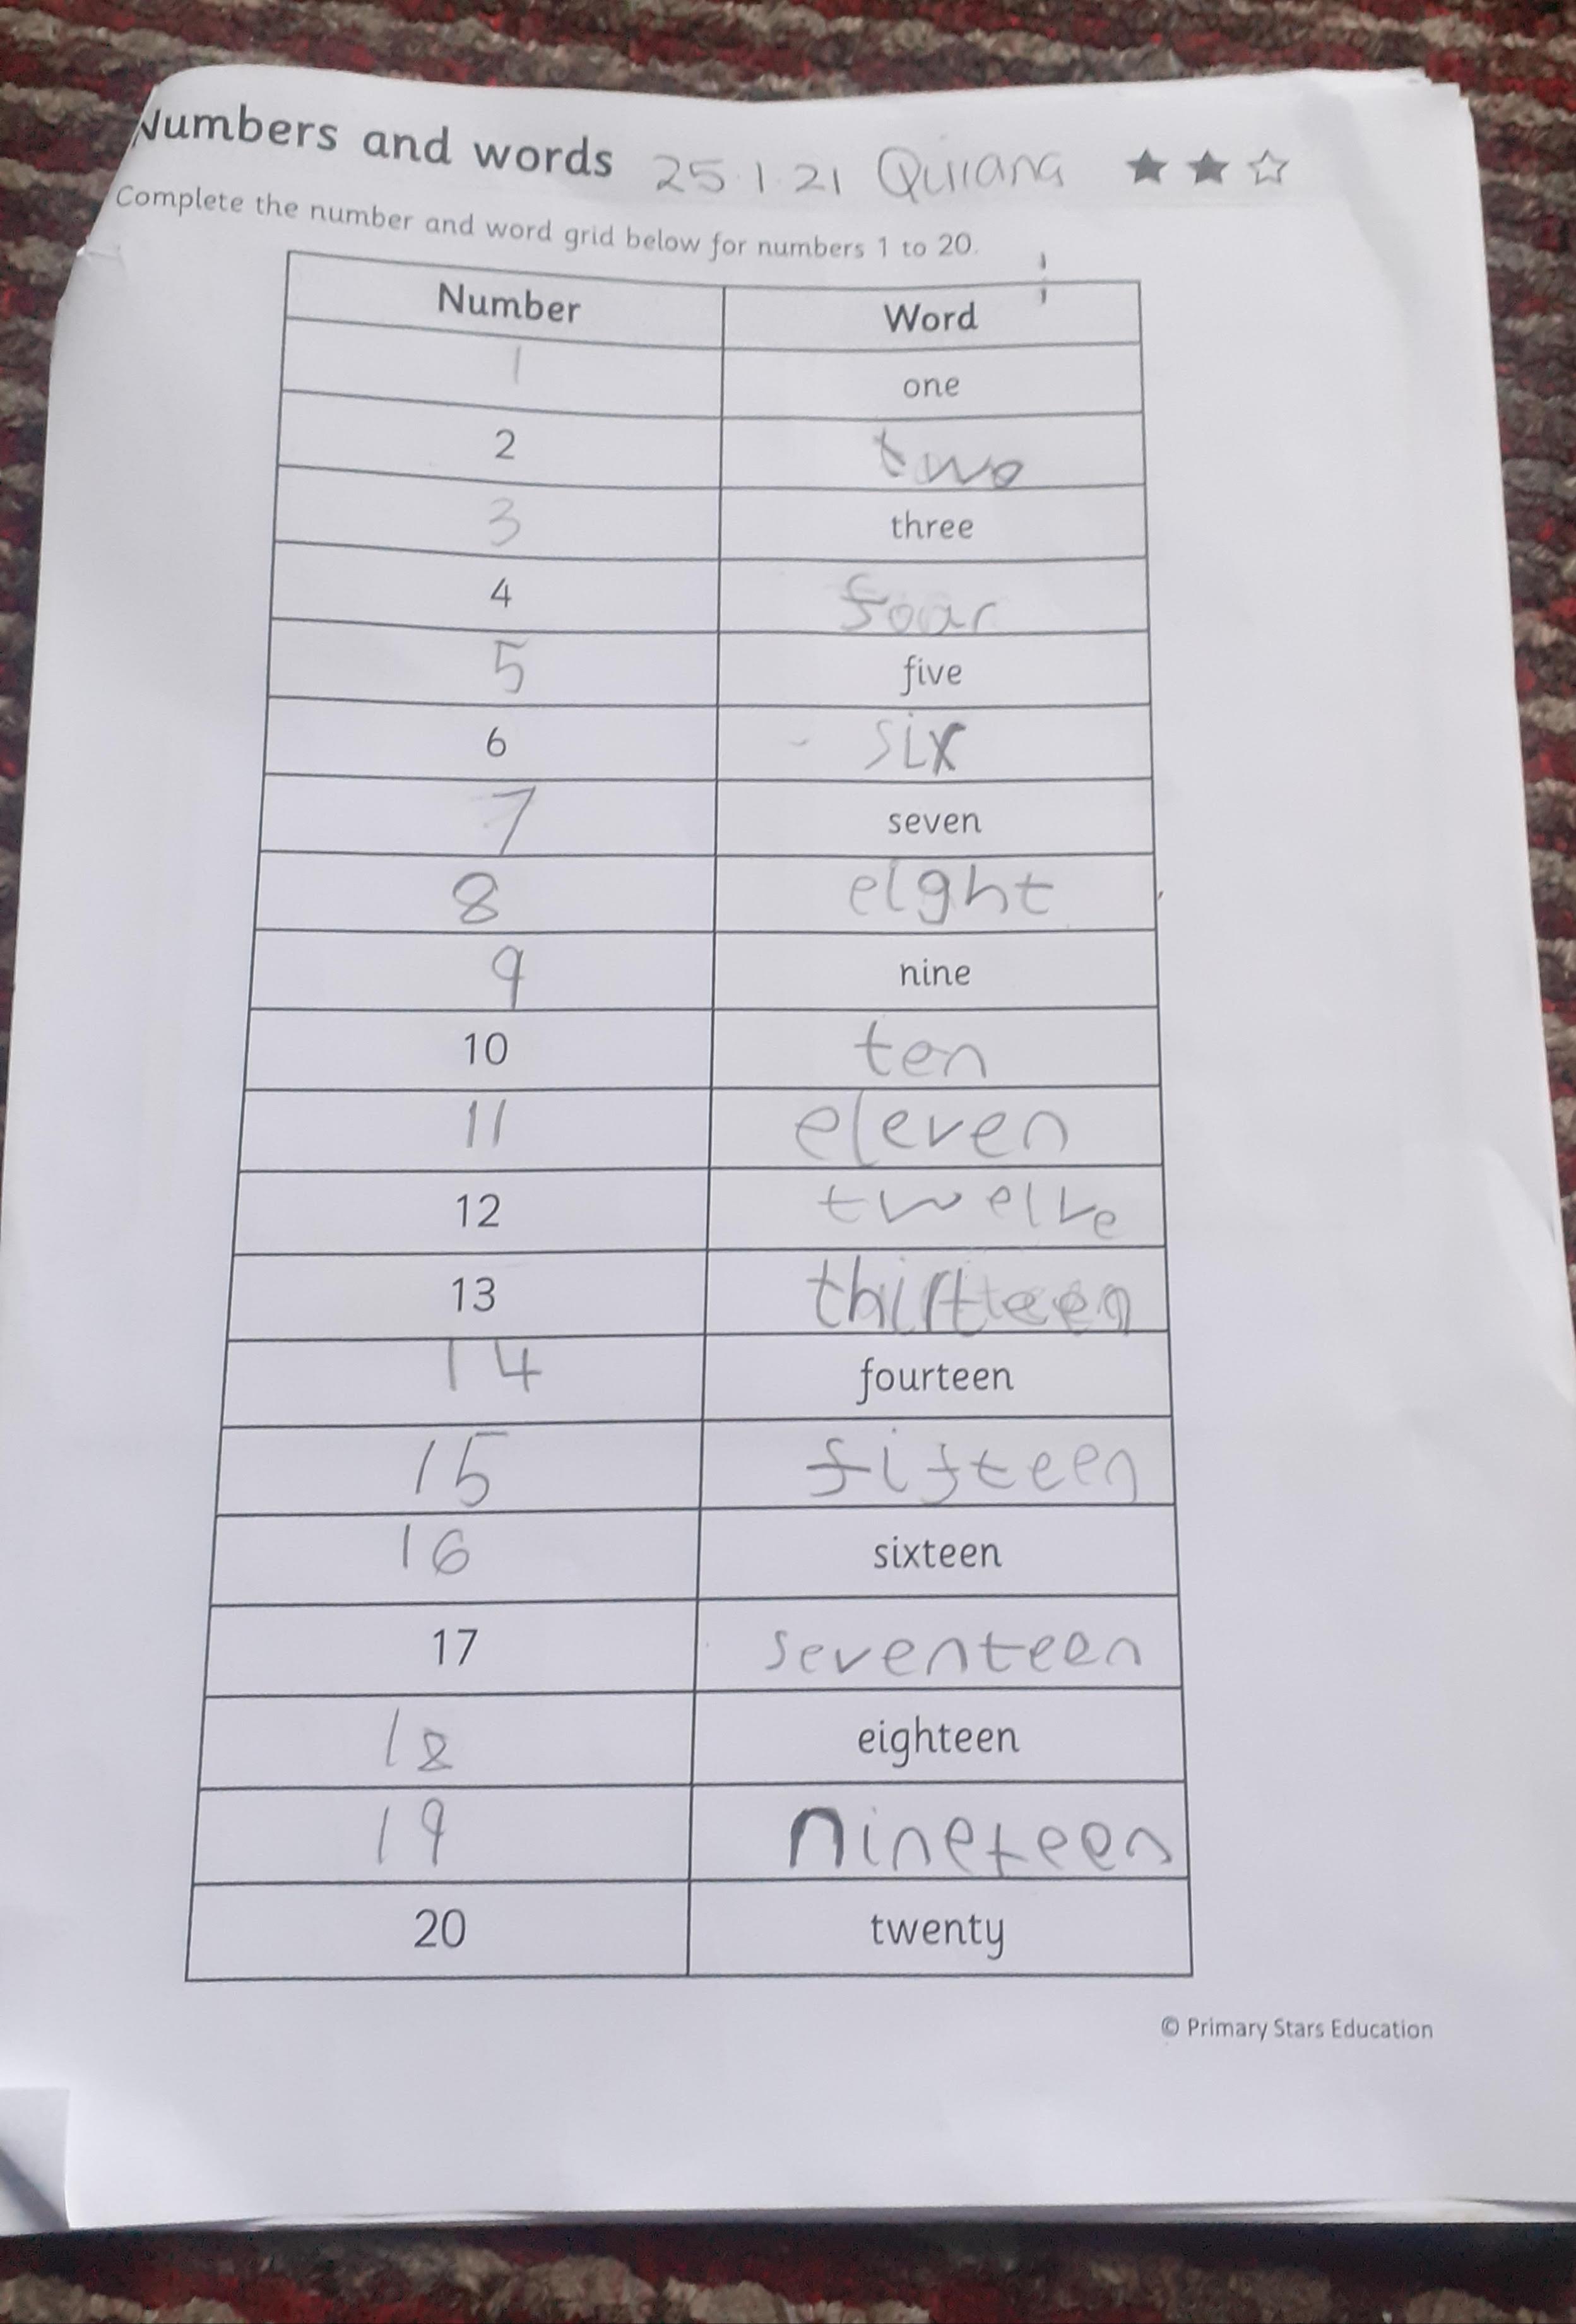 Numbers and words 25.1.21 ★ ★ ☆
Complete the number and word grid below for numbers 1 to 20.
Number Word
1 one
2 two
3 three
4 foar
5 five
6 six
7 seven
8 eight
9 nine
10 ten
11 eleven
12 twelve
13 thirteen
14 fourteen
15 fifteen
16 sixteen
17 seventeen
18 eighteen
19 nineteen
20 twenty
© Primary Stars Education